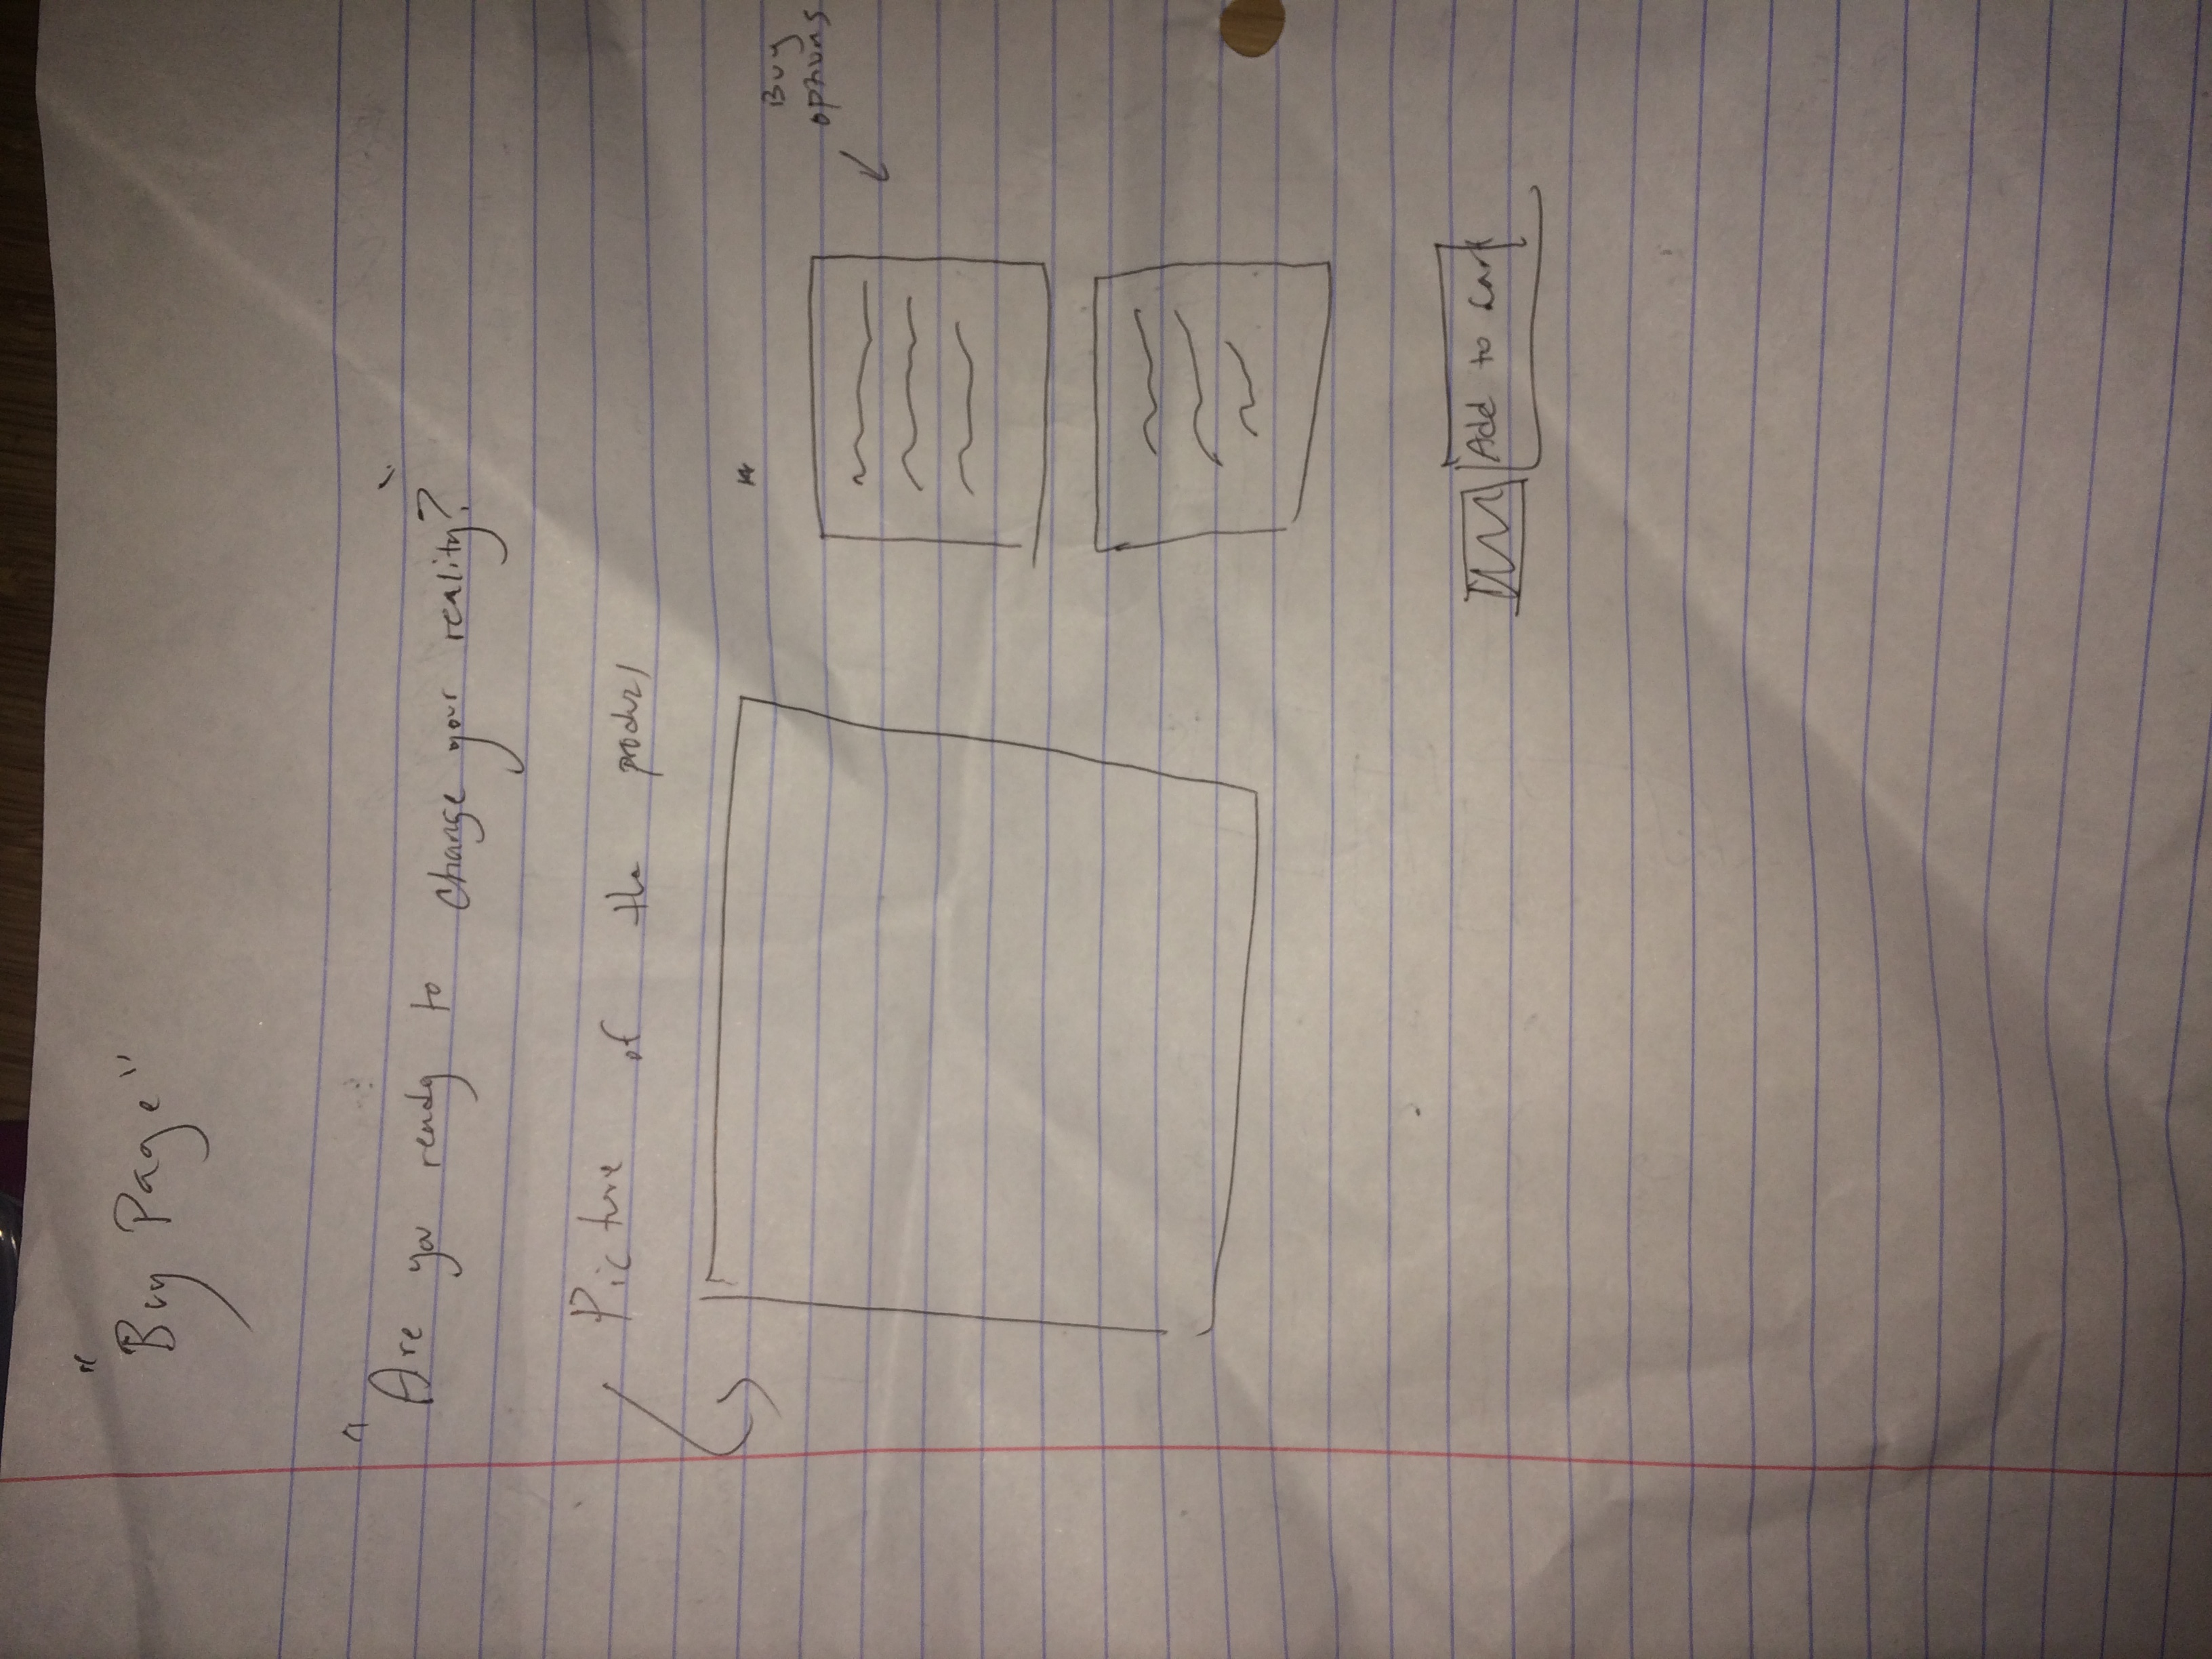 "Buy Page"
"Are you ready to change your reality?"
Picture of the product
Buy
options
Add to Cart